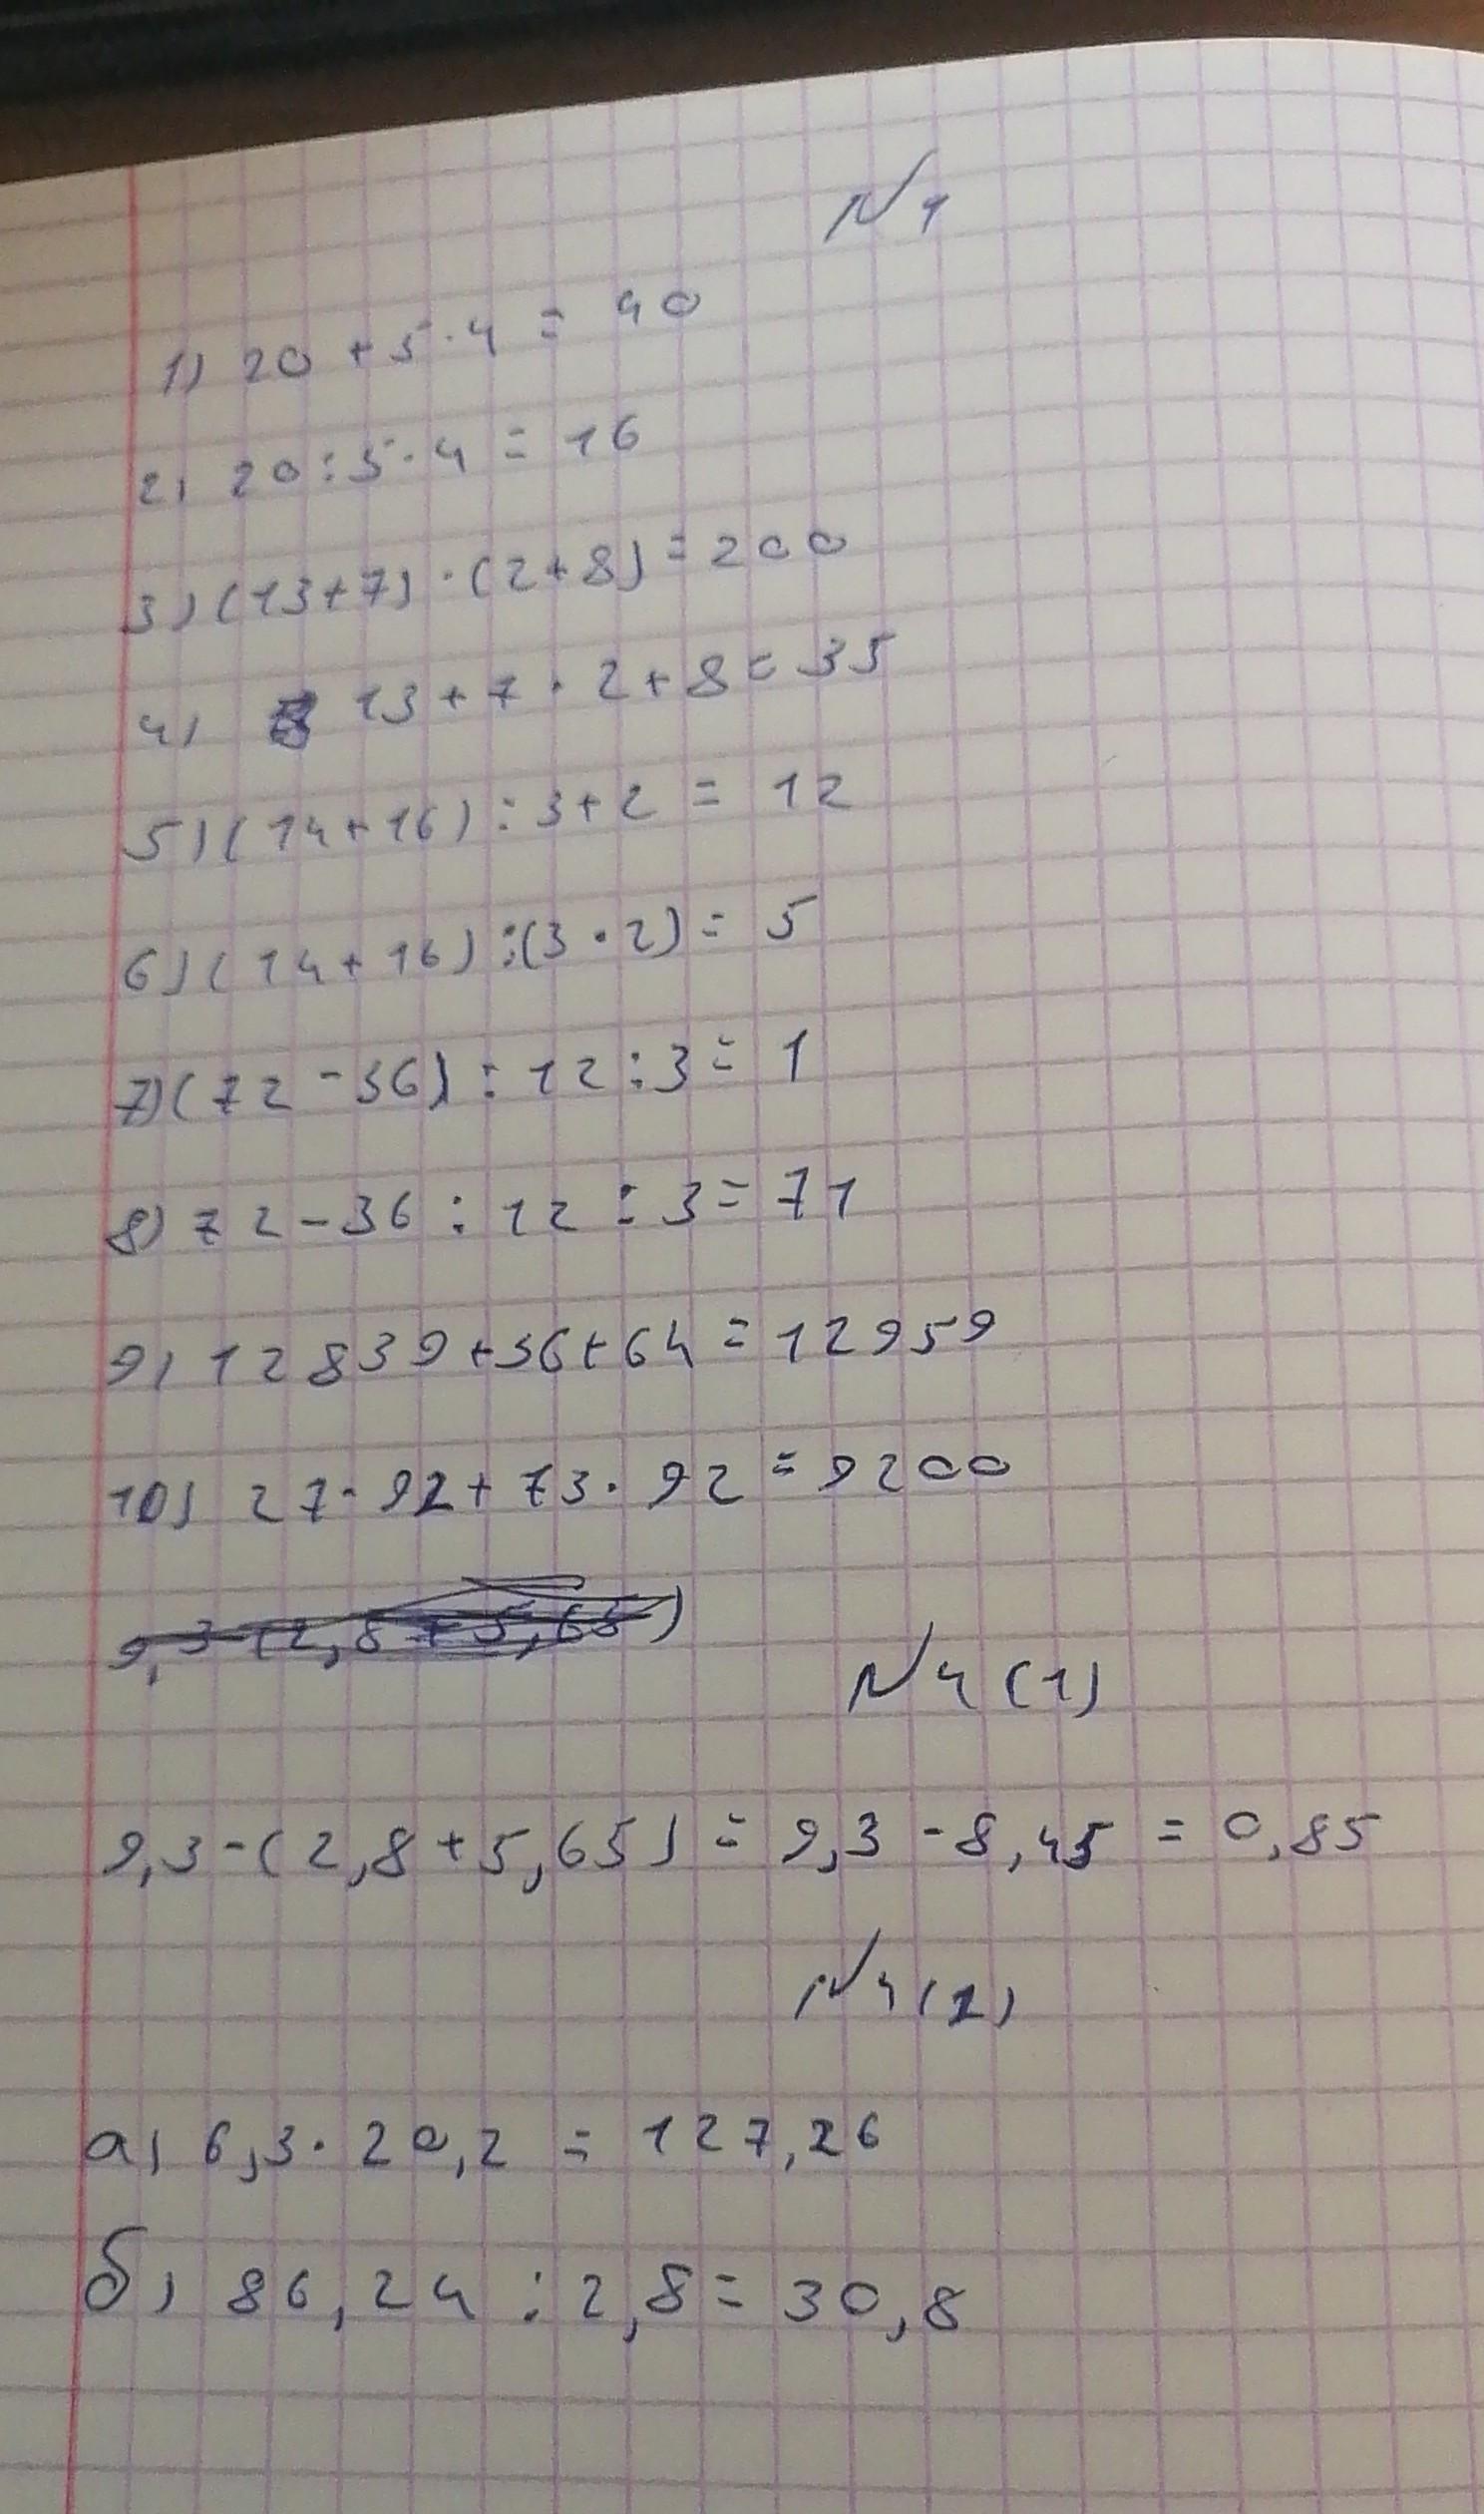 N1
1) 20 + 5 · 4 = 40
2) 20 : 5 · 4 = 16
3) (13+7) · (2+8) = 200
4) 13 + 7 · 2 + 8 = 35
5) (14+16) : 3+2 = 12
6) (14+16) : (3 · 2) = 5
7) (72-36) : 12 : 3 = 1
8) 72 - 36 : 12 : 3 = 71
9) 12839+56+64 = 12959
10) 27 · 92 + 73 · 92 = 9200
9,3-(2,8+5,65)
N4(1)
9,3-(2,8+5,65) = 9,3 - 8,45 = 0,85
N4(2)
а) 6,3 · 20,2 = 127,26
б) 86,24 : 2,8 = 30,8